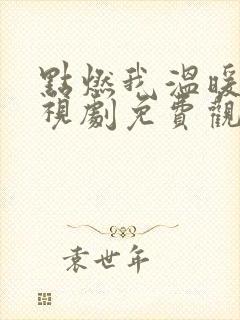 點燃我 溫暖
視劇免費觀
袁世年